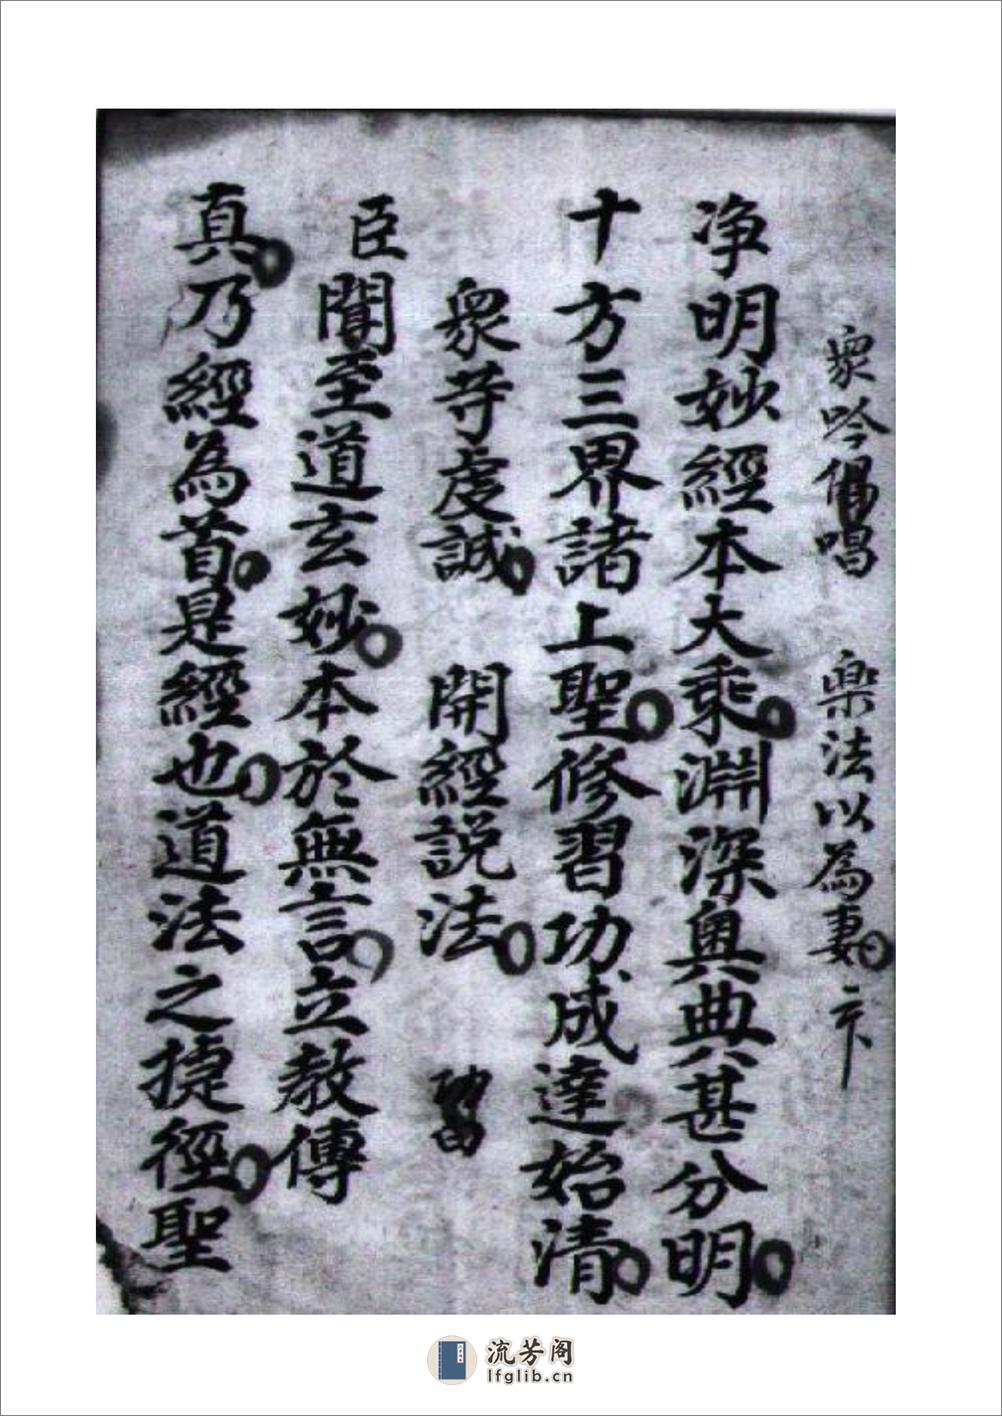 衆吟偈唱 樂法以為妻 云下
净明妙經本大乘淵深奥典甚分明
十方三界諸上聖修習功成達始清
衆等虔誠 開經説法
臣聞至道玄妙本於無言立教傳
真乃經為首是經也道法之捷徑聖
流芳阁
lfglib.cn